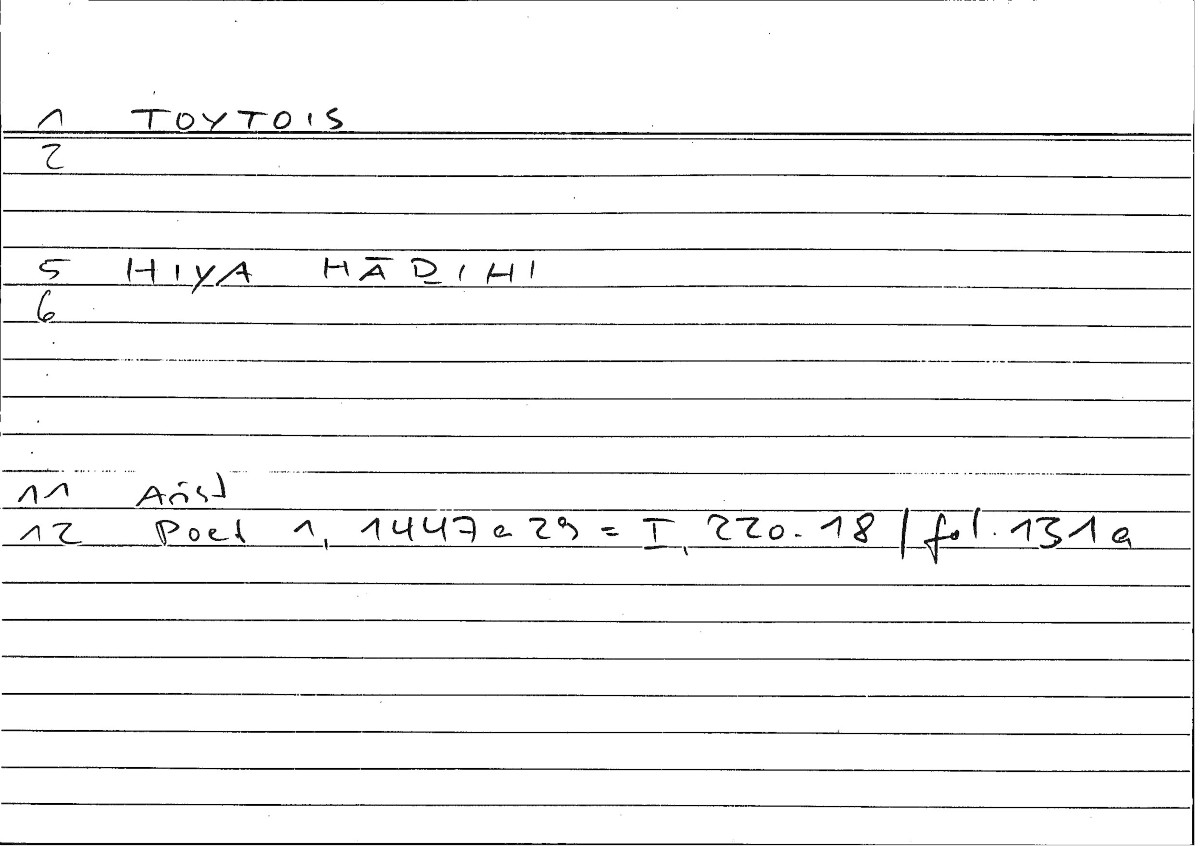 1 TOYTOIS
2
5 HIYA HĀḎIHI
6
11 Arist
12 Poet 1, 1447a29 = I, 220.18 / fol. 131a